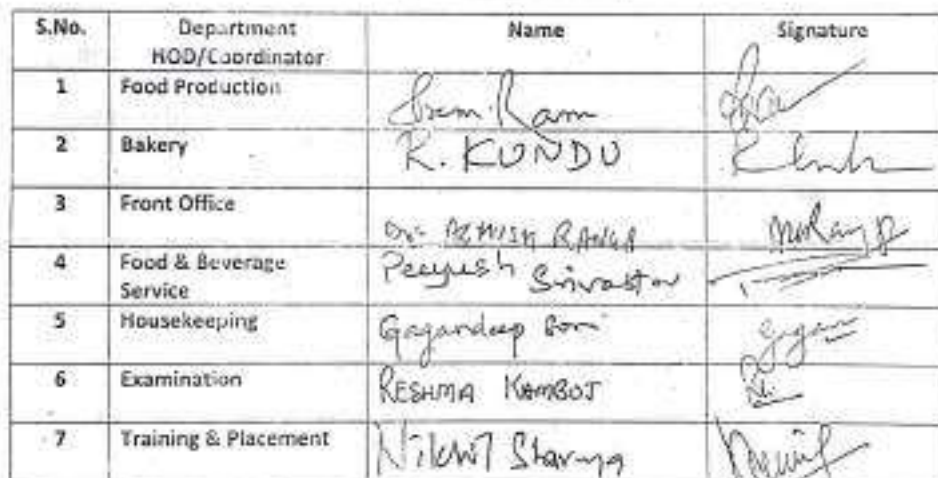 S.No. Department HOD/Coordinator Name Signature
1 Food Production Ram
2 Bakery R. KUNDU
3 Front Office Dr. ASHISH RANGA
4 Food & Beverage Service Peeyush Srivastav
5 Housekeeping Gagandeep Soni
6 Examination RESHMA KAMBOJ Gagan
7 Training & Placement Nikhil Sharma